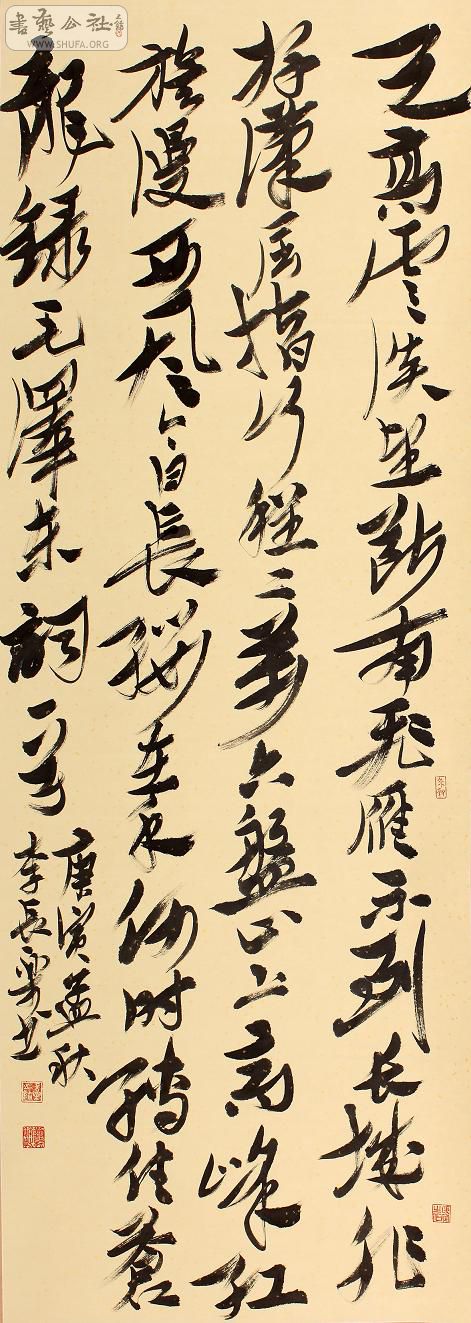 書藝公社
WWW.SHUFA.ORG
天高雲淡望断南飛雁不到长城非
好漢屈指行程二萬六盤山上高峰红
旗漫西风今日長纓在手何时缚住蒼
龍録毛澤东詞一首
庚寅孟秋
李長书